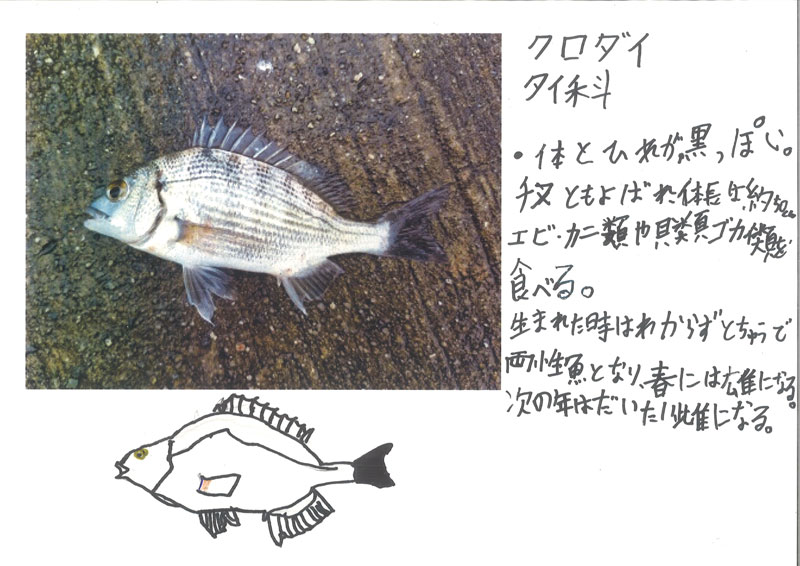 クロダイ
タイ科
・体とひれが黒っぽい。
チヌともよばれ体長は約
エビ・カニ類や貝類ゴカイ類を
食べる。
生まれた時はわからずとちゅうで
両性魚となり、春には雄になる。
次の年はだいたい雌になる。